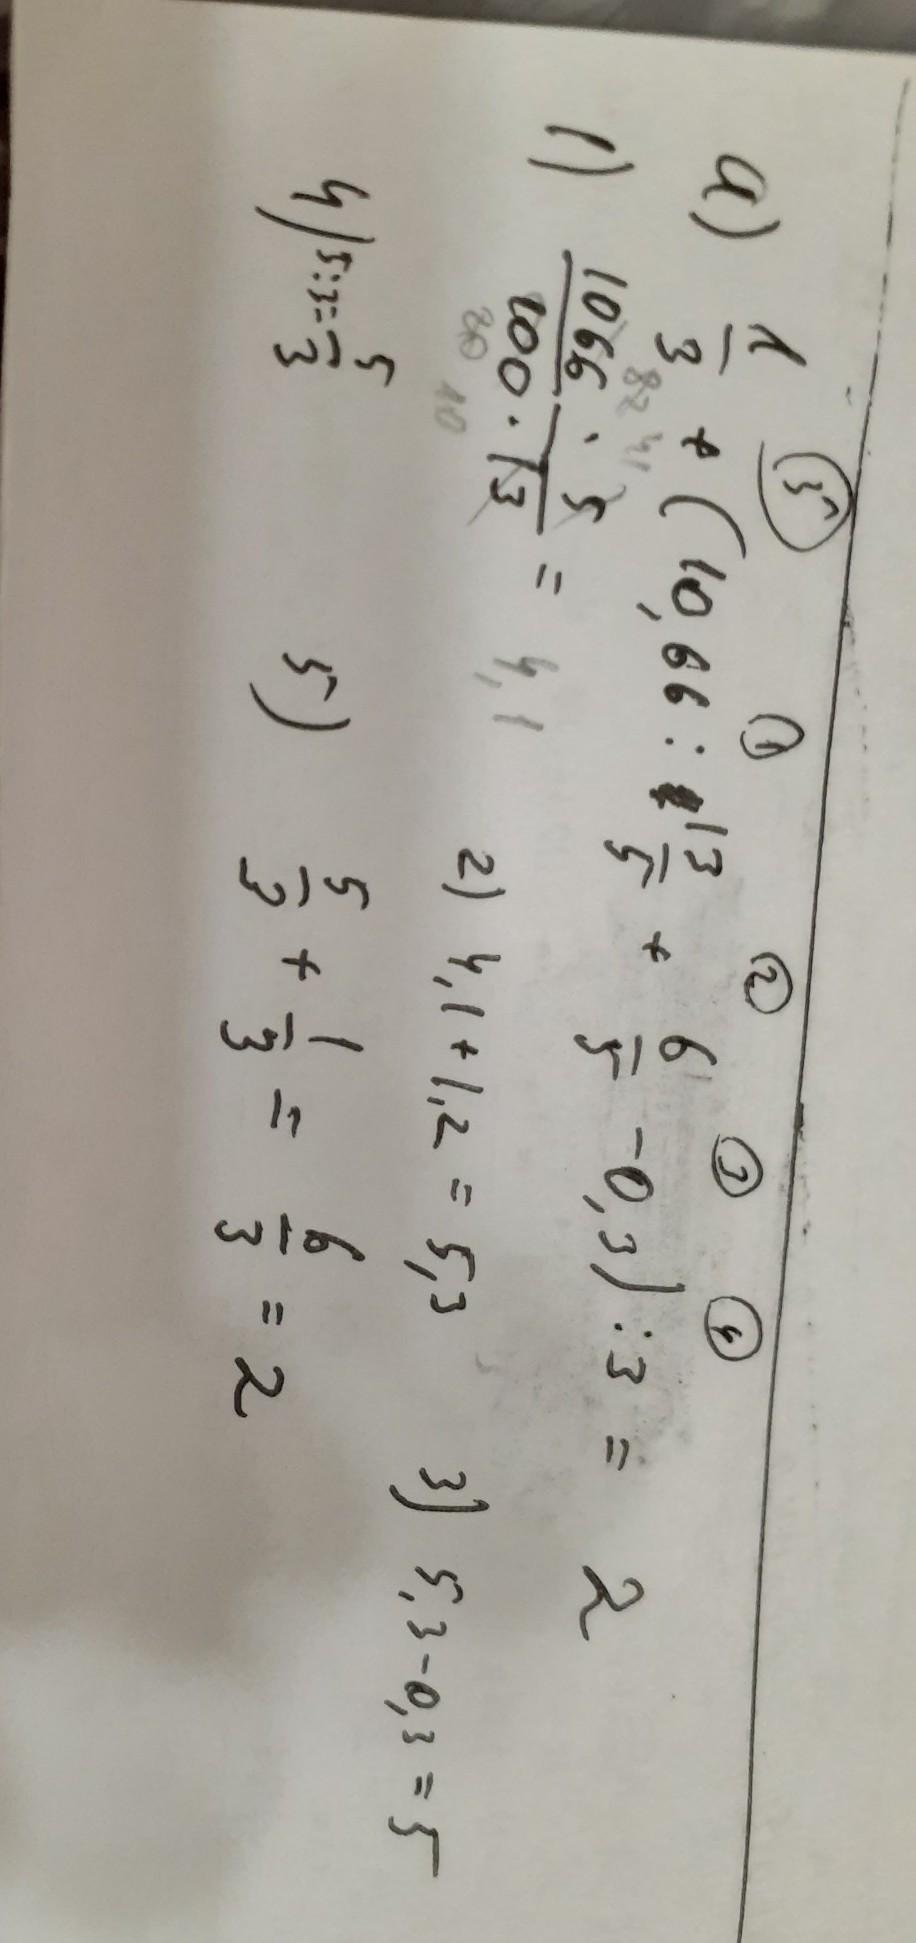 ⑤ ① ② ③ ④
a) 1/3 + (10,66 : 13/5 + 6/5 - 0,3) : 3 = 2
82 41
1) 1066 · 5 / 100 · 13 = 4,1 2) 4,1 + 1,2 = 5,3 3) 5,3 - 0,3 = 5
20 10
4) 5:3 = 5/3 5) 5/3 + 1/3 = 6/3 = 2